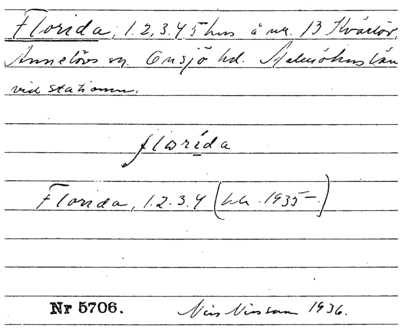 Florida, 1.2.3.4 5 hus å nr. 13 Kvärlöv,
Annelövs sn. Onsjö hd. Malmöhus län
vid stationen.
florída
Florida, 1.2.3.4 (kk. 1935–)
Nr 5706. Nils Nilsson 1936.